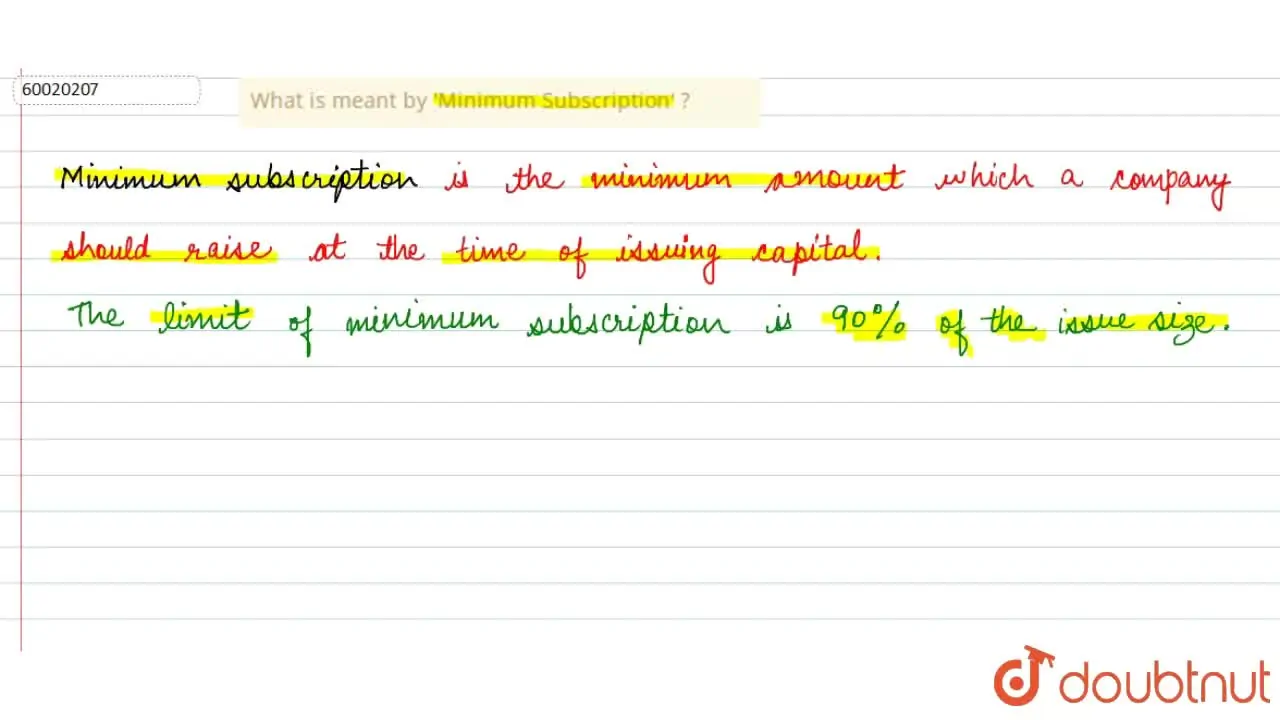 60020207
What is meant by 'Minimum Subscription' ?
Minimum subscription is the minimum amount which a company
should raise at the time of issuing capital.
The limit of minimum subscription is 90% of the issue size.
doubtnut